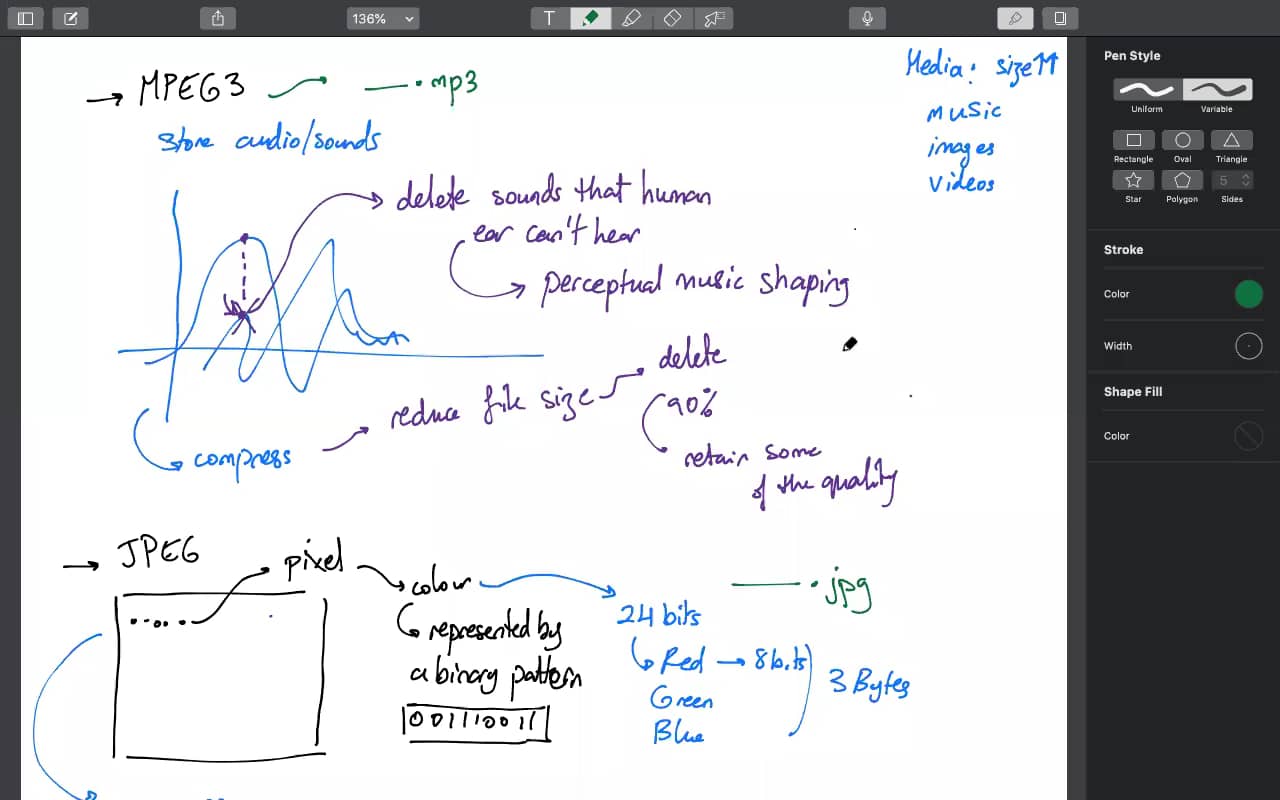 136%
T
MPEG3
.mp3
Media: size↑↑
music
images
videos
Store audio/sounds
delete sounds that human
ear can't hear
perceptual music shaping
compress
reduce file size
delete
90%
retain some
of the quality
JPEG
pixel
colour
represented by
a binary pattern
001110011
.jpg
24 bits
Red → 8 bits
Green
Blue
3 Bytes
Pen Style
Uniform Variable
Rectangle Oval Triangle
5
Star Polygon Sides
Stroke
Color
Width
Shape Fill
Color